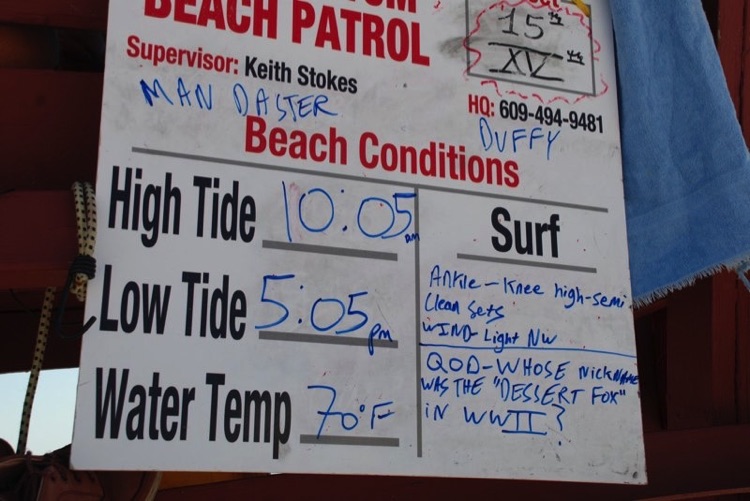 BEACH PATROL
15th
XV th
Supervisor: Keith Stokes
MAN DASTER
HQ: 609-494-9481
DUFFY
Beach Conditions
High Tide 10:05 am
Low Tide 5:05 pm
Water Temp 70°F
Surf
Ankle - Knee high-semi
Clean sets
WIND- Light NW
QOD-WHOSE NICKNAME
WAS THE "DESSERT FOX"
iN WWII?